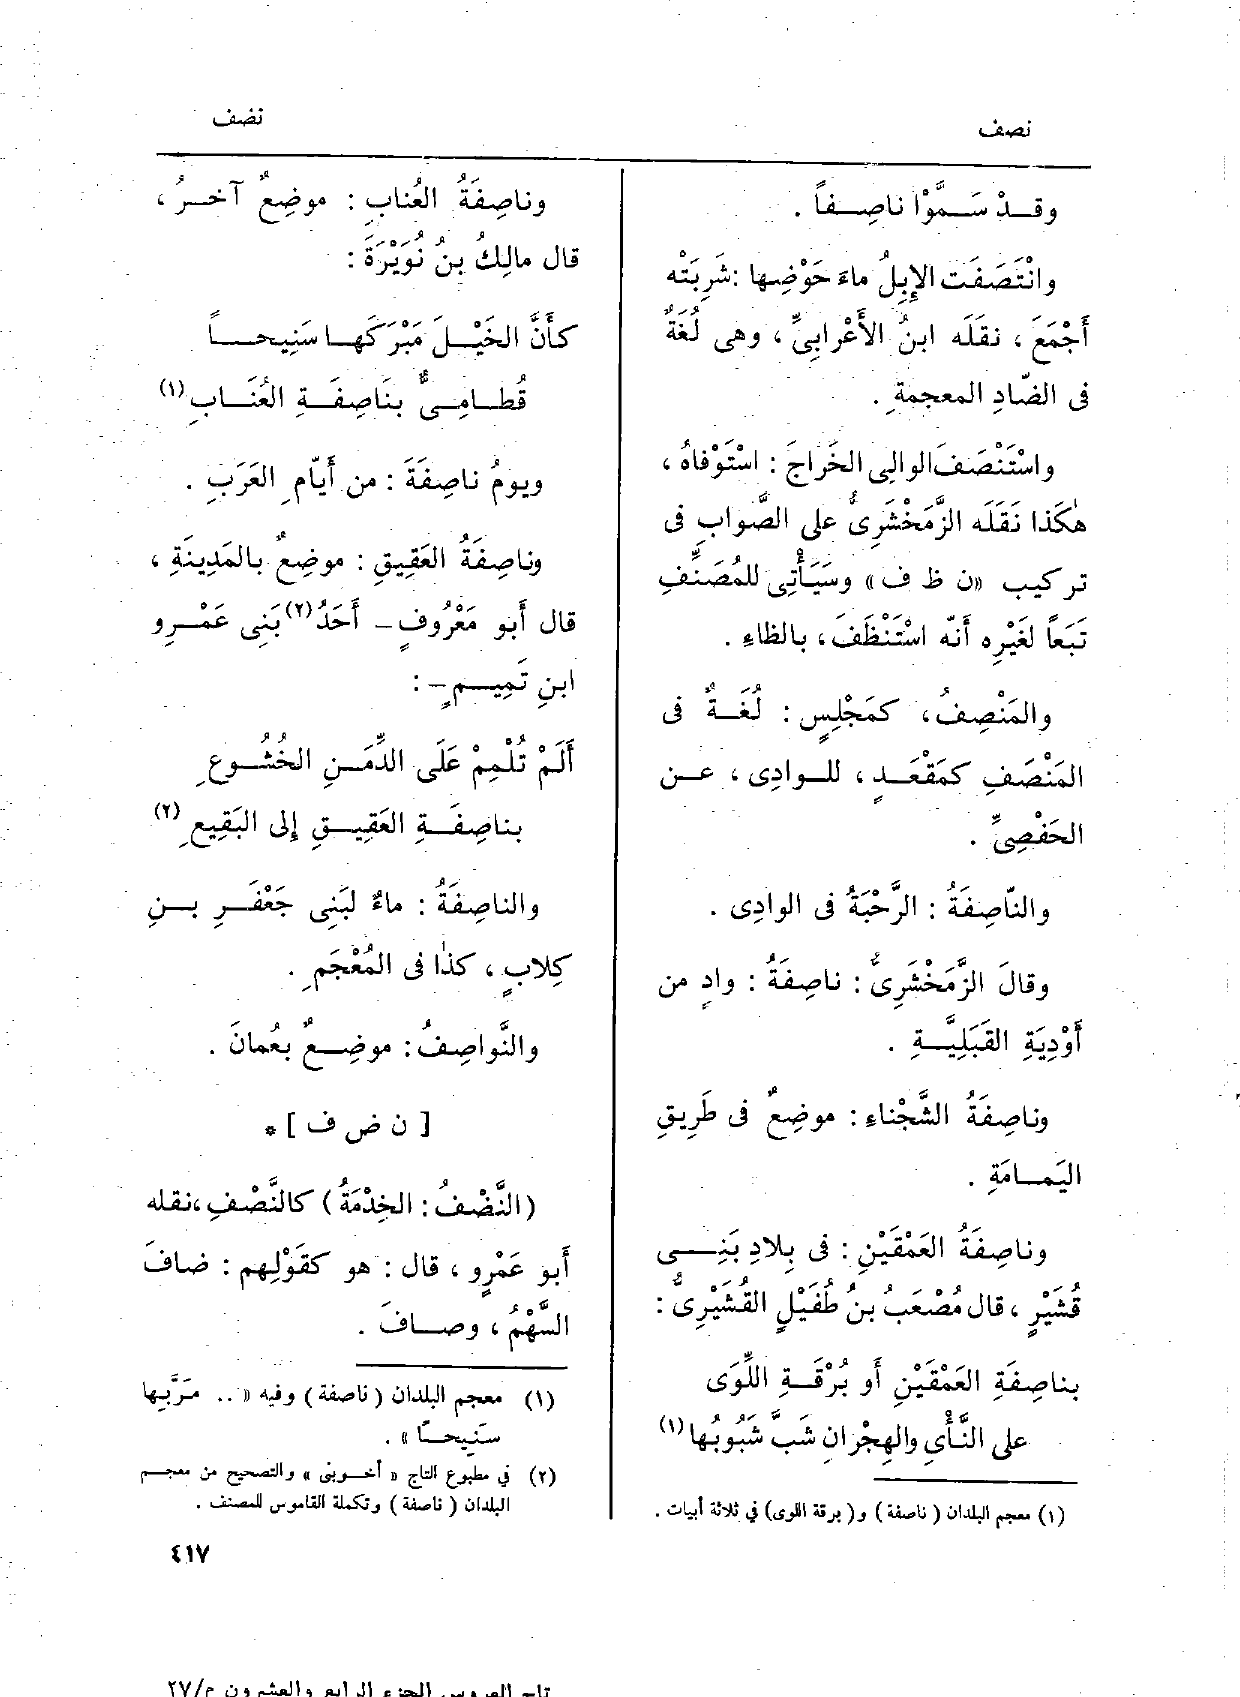 نصف
نضف
وقـدْ سَـمَّوْا ناصِـفاً .
وانْتَصَفَت الإِبِلُ ماءَ حَوْضِها : شَرِبَتْه
أَجْمَعَ ، نقلَه ابنُ الأَعْرابِيِّ ، وهى لُغَةٌ
فى الضّادِ المعجمةِ .
واسْتَنْصَفَ الوالِى الخَراجَ : اسْتَوْفاهُ ،
هٰكَذا نَقَلَه الزَّمَخْشَرِىُّ على الصَّوابِ فى
تركيب «ن ظ ف» وسَيَأْتِى للمُصَنِّفِ
تَبَعاً لغَيْرِه أَنّه اسْتَنْظَفَ ، بالظاءِ .
والمَنْصِفُ ، كمَجْلِسٍ : لُغَـةٌ فى
المَنْصَفِ كمَقْعَـدٍ ، للـوادِى ، عـن
الحَفْصِىِّ .
والنّاصِفَةُ : الرَّحْبَةُ فى الوادِى .
وقالَ الزَّمَخْشَرِىُّ : ناصِفَةُ : وادٍ من
أَوْدِيَةِ القَبَلِيَّـةِ .
وناصِفَةُ الشَّجْناءِ : موضِعٌ فى طَرِيقِ
اليَمـامَةِ .
وناصِفَةُ العَمْقَيْنِ : فى بِلادِ بَنِـى
قُشَيْرٍ ، قال مُصْعَبُ بنُ طُفَيْلٍ القُشَيْرِىُّ :
بناصِفَةِ العَمْقَيْنِ أَو بُرْقَـةِ اللِّوَى
على النَّأْىِ والهِجْرانِ شَبَّ شَبُوبُها (١)
(١) معجم البلدان ( ناصفة ) و( برقة اللوى) في ثلاثة أبيات .
وناصِفَةُ العُنابِ : موضِعٌ آخـرُ ،
قال مالِكُ بنُ نُوَيْرَةَ :
كأَنَّ الخَيْـلَ مَبْرَكَهـا سَنِيحـاً
قُطـامِـىٌّ بنَاصِفَـةِ العُنَـابِ (١)
ويومُ ناصِفَةَ : من أَيّامِ العَرَبِ .
وناصِفَةُ العَقِيقِ : موضِعٌ بالمَدِينَةِ ،
قال أَبو مَعْرُوفٍ – أَحَدُ (٢) بَنِى عَمْـرِو
ابنِ تَمِيـمٍ – :
أَلَمْ تُلْمِمْ عَلَى الدِّمَـنِ الخُشُـوعِ
بناصِفَـةِ العَقِيـقِ إِلى البَقِيعِ (٢)
والناصِفَةُ : ماءٌ لبَنِى جَعْفَـرِ بـنِ
كِلابٍ ، كذٰا فى المُعْجَمِ .
والنَّواصِفُ : موضِـعٌ بعُمانَ .
[ ن ض ف ] *
(النَّضْفُ : الخِدْمَةُ ) كالنَّصْفِ ، نقله
أَبو عَمْرٍو ، قال : هو كقَوْلِهم : ضافَ
السَّهْمُ ، وصـافَ .
(١) معجم البلدان ( ناصفة ) وفيه « .. مَرَّبها
سَنِيحـاً » .
(٢) في مطبوع التاج « أخـوبنى » والتصحيح من معجـم
البلدان ( ناصفة ) وتكملة القاموس للمصنف .
٤١٧
تاج العروس الجزء الرابع والعشرون م/٢٧